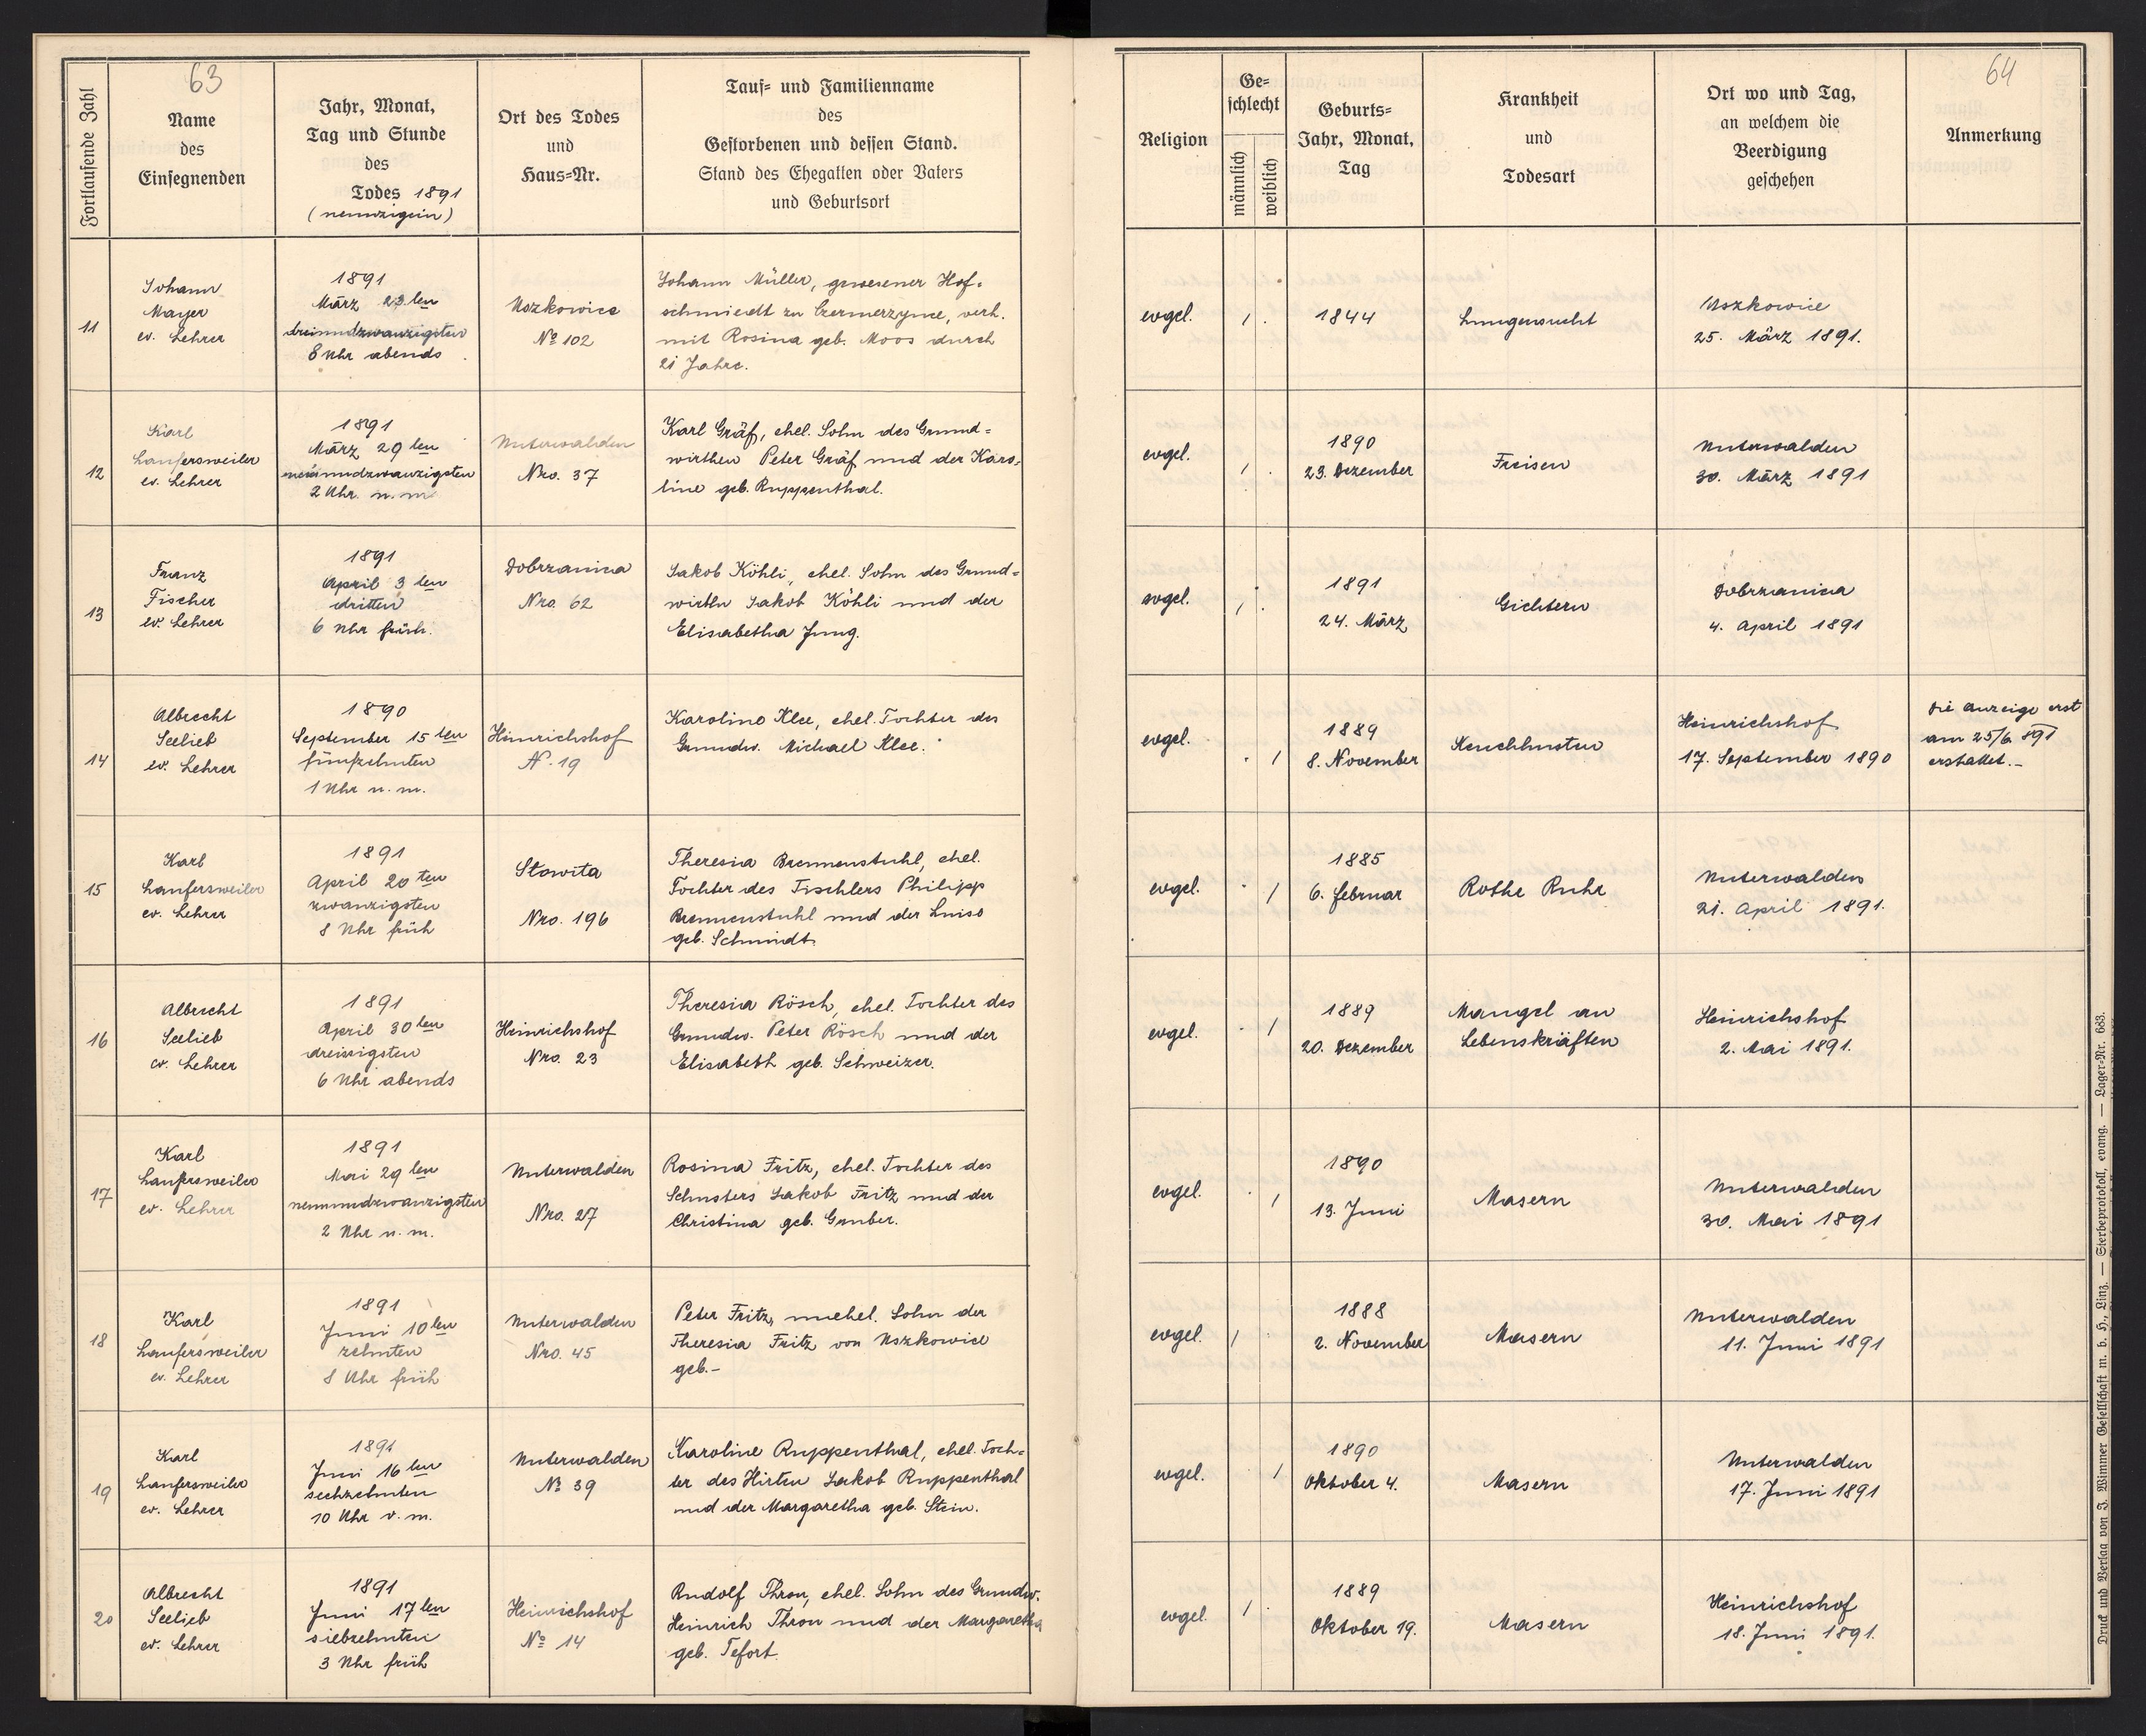 63
Fortlaufende Zahl
Name
des
Einsegnenden
Jahr, Monat,
Tag und Stunde
des
Todes 1891
(neunzigein)
Ort des Todes
und
Haus-Nr.
Tauf- und Familienname
des
Gestorbenen und dessen Stand.
Stand des Ehegatten oder Vaters
und Geburtsort
64
Religion
Ge-
schlecht
männlich
weiblich
Geburts-
Jahr, Monat,
Tag
Krankheit
und
Todesart
Ort wo und Tag,
an welchem die
Beerdigung
geschehen
Anmerkung
11
Johann
Mayer
ev. Lehrer
1891
März 23ten
dreiundzwanzigsten
8 Uhr abends
Uszkowice
No 102
Johann Müller, gewesener Hof-
schmiedt zu Czemerzynce, verh.
mit Rosina geb. Moos durch
21 Jahre.
evgel.
1 .
1844
Lungensucht
Uszkowice
25. März 1891.
12
Karl
Laufersweiler
ev. Lehrer
1891
März 29ten
neunundzwanzigsten
2 Uhr n. m.
Unterwalden
Nro. 37
Karl Gräf, ehel. Sohn des Grund-
wirthen Peter Gräf und der Karo-
line geb. Ruppenthal.
evgel.
1 .
1890
23. Dezember
Freisen
Unterwalden
30. März 1891
13
Franz
Fischer
ev. Lehrer
1891
April 3ten
dritten
6 Uhr früh.
Dobrzanica
Nro. 62
Jakob Köhli, ehel. Sohn des Grund-
wirthn Jakob Köhli und der
Elisabetha Jung.
evgel.
1 .
1891
24. März
Gichtern
Dobrzanica
4. April 1891
14
Albrecht
Seelieb
ev. Lehrer
1890
September 15ten
fünfzehnten
1 Uhr n. m.
Heinrichshof
N. 19
Karoline Klee, ehel. Tochter des
Grundw. Michael Klee.
evgel.
. 1
1889
8. November
Keuchhusten
Heinrichshof
17. September 1890
Die Anzeige erst
am 25/6 891
erstattet.-
15
Karl
Laufersweiler
ev. Lehrer
1891
April 20ten
zwanzigsten
8 Uhr früh
Slowita
Nro. 196
Theresia Brennenstuhl, ehel.
Tochter des Tischlers Philipp
Brennenstuhl und der Luise
geb. Schmidt.
evgel.
. 1
1885
6. Februar
Rothe Ruhr
Unterwalden
21. April 1891.
16
Albrecht
Seelieb
ev. Lehrer
1891
April 30ten
dreissigsten
6 Uhr abends
Heinrichshof
Nro. 23
Theresia Rösch, ehel. Tochter des
Grundw. Peter Rösch und der
Elisabeth geb. Schweizer.
evgel.
. 1
1889
20. Dezember
Mangel an
Lebenskräften
Heinrichshof
2. Mai 1891.
17
Karl
Laufersweiler
ev. Lehrer
1891
Mai 29ten
neunundzwanzigsten
2 Uhr n. m.
Unterwalden
Nro. 27
Rosina Fritz, ehel. Tochter des
Schusters Jakob Fritz und der
Christina geb. Gauber.
evgel.
. 1
1890
13. Juni
Masern
Unterwalden
30. Mai 1891
18
Karl
Laufersweiler
ev. Lehrer
1891
Juni 10ten
zehnten
8 Uhr früh
Unterwalden
Nro. 45
Peter Fritz, unehel. Sohn der
Theresia Fritz von Uszkowice
geb.-
evgel.
1 .
1888
2. November
Masern
Unterwalden
11. Juni 1891
19
Karl
Laufersweiler
ev. Lehrer
1891
Juni 16ten
sechzehnten
10 Uhr v. m.
Unterwalden
No 39
Karoline Ruppenthal, ehel. Toch-
ter des Hirten Jakob Ruppenthal
und der Margaretha geb. Stein.
evgel.
. 1
1890
Oktober 4.
Masern
Unterwalden
17. Juni 1891
20
Albrecht
Seelieb
ev. Lehrer
1891
Juni 17ten
siebzehnten
3 Uhr früh
Heinrichshof
No 14
Rudolf Thron, ehel. Sohn des Grundw.
Heinrich Thron und der Margaretha
geb. Tefort.
evgel.
1 .
1889
Oktober 19.
Masern
Heinrichshof
18. Juni 1891.
Druck und Verlag von J. Wimmer Gesellschaft m. b. H., Linz. — Sterbeprotokoll, evang. — Lager-Nr. 683.